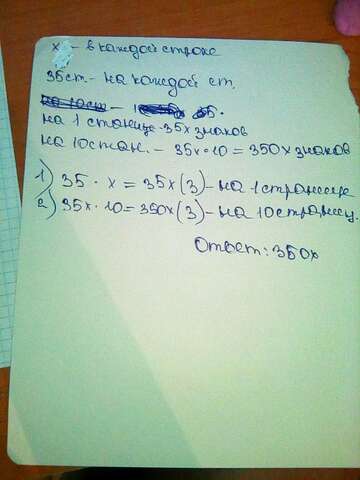 x - в каждой строке
35 ст. - на каждой ст.
на 1 станице - 35x знаков
на 10 стан. - 35x · 10 = 350x знаков
1) 35 · x = 35x (З) - на 1 странице
2) 35x · 10 = 350x (З) - на 10 страниц.
Ответ: 350x